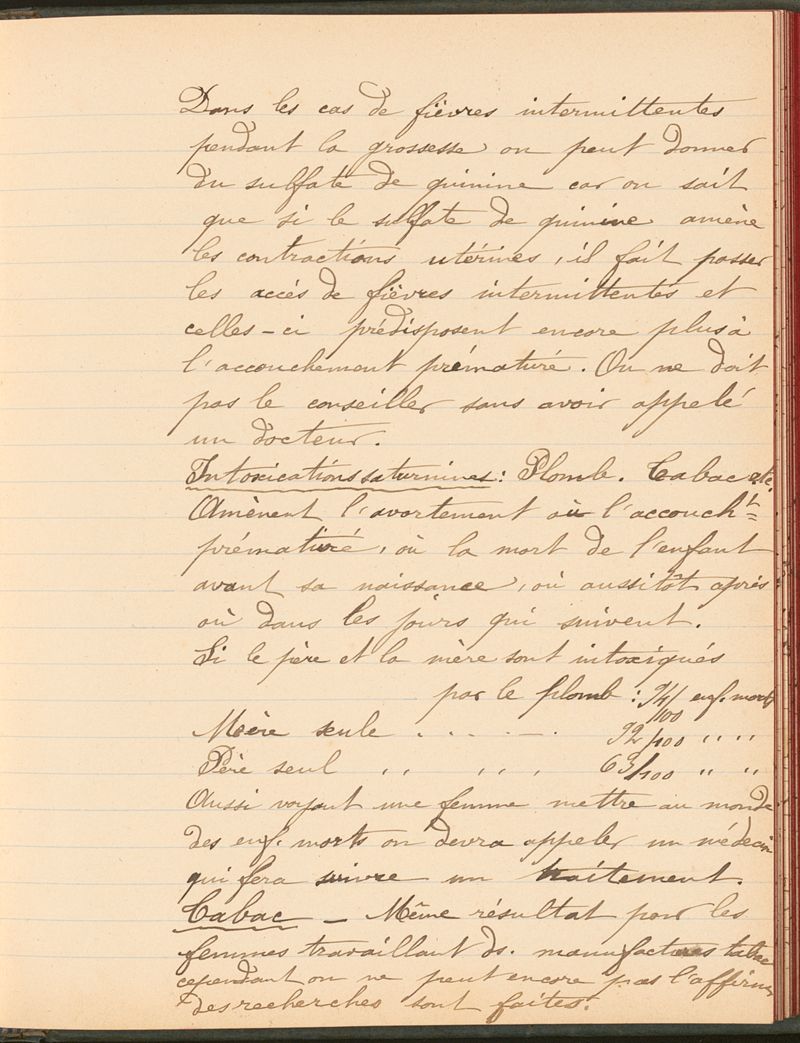 Dans les cas de fièvres intermittentes
pendant la grossesse on peut donner
du sulfate de quinine car on sait
que si le sulfate de quinine amène
les contractions utérines, il fait passer
les accès de fièvres intermittentes et
celles-ci prédisposent encore plus à
l'accouchement prématuré. On ne doit
pas le conseiller sans avoir appelé
un docteur.
Intoxications saturnines : Plomb. Tabac etc.
Amènent l'avortement où l'accouch^t
prématuré, où la mort de l'enfant
avant sa naissance, où aussitôt après
où dans les jours qui suivent.
Si le père et la mère sont intoxiqués
par le plomb : 94/100 enf. morts
Mère seule . . . . - . 92/100 " "
Père seul , , , , , 63/100 " "
Aussi voyant une femme mettre au monde
des enf. morts on devra appeler un médecin
qui fera suivre un traitement.
Tabac – Même résultat pour les
femmes travaillant ds. manufactures tabac
cependant on ne peut encore pas l'affirmer
des recherches sont faites.